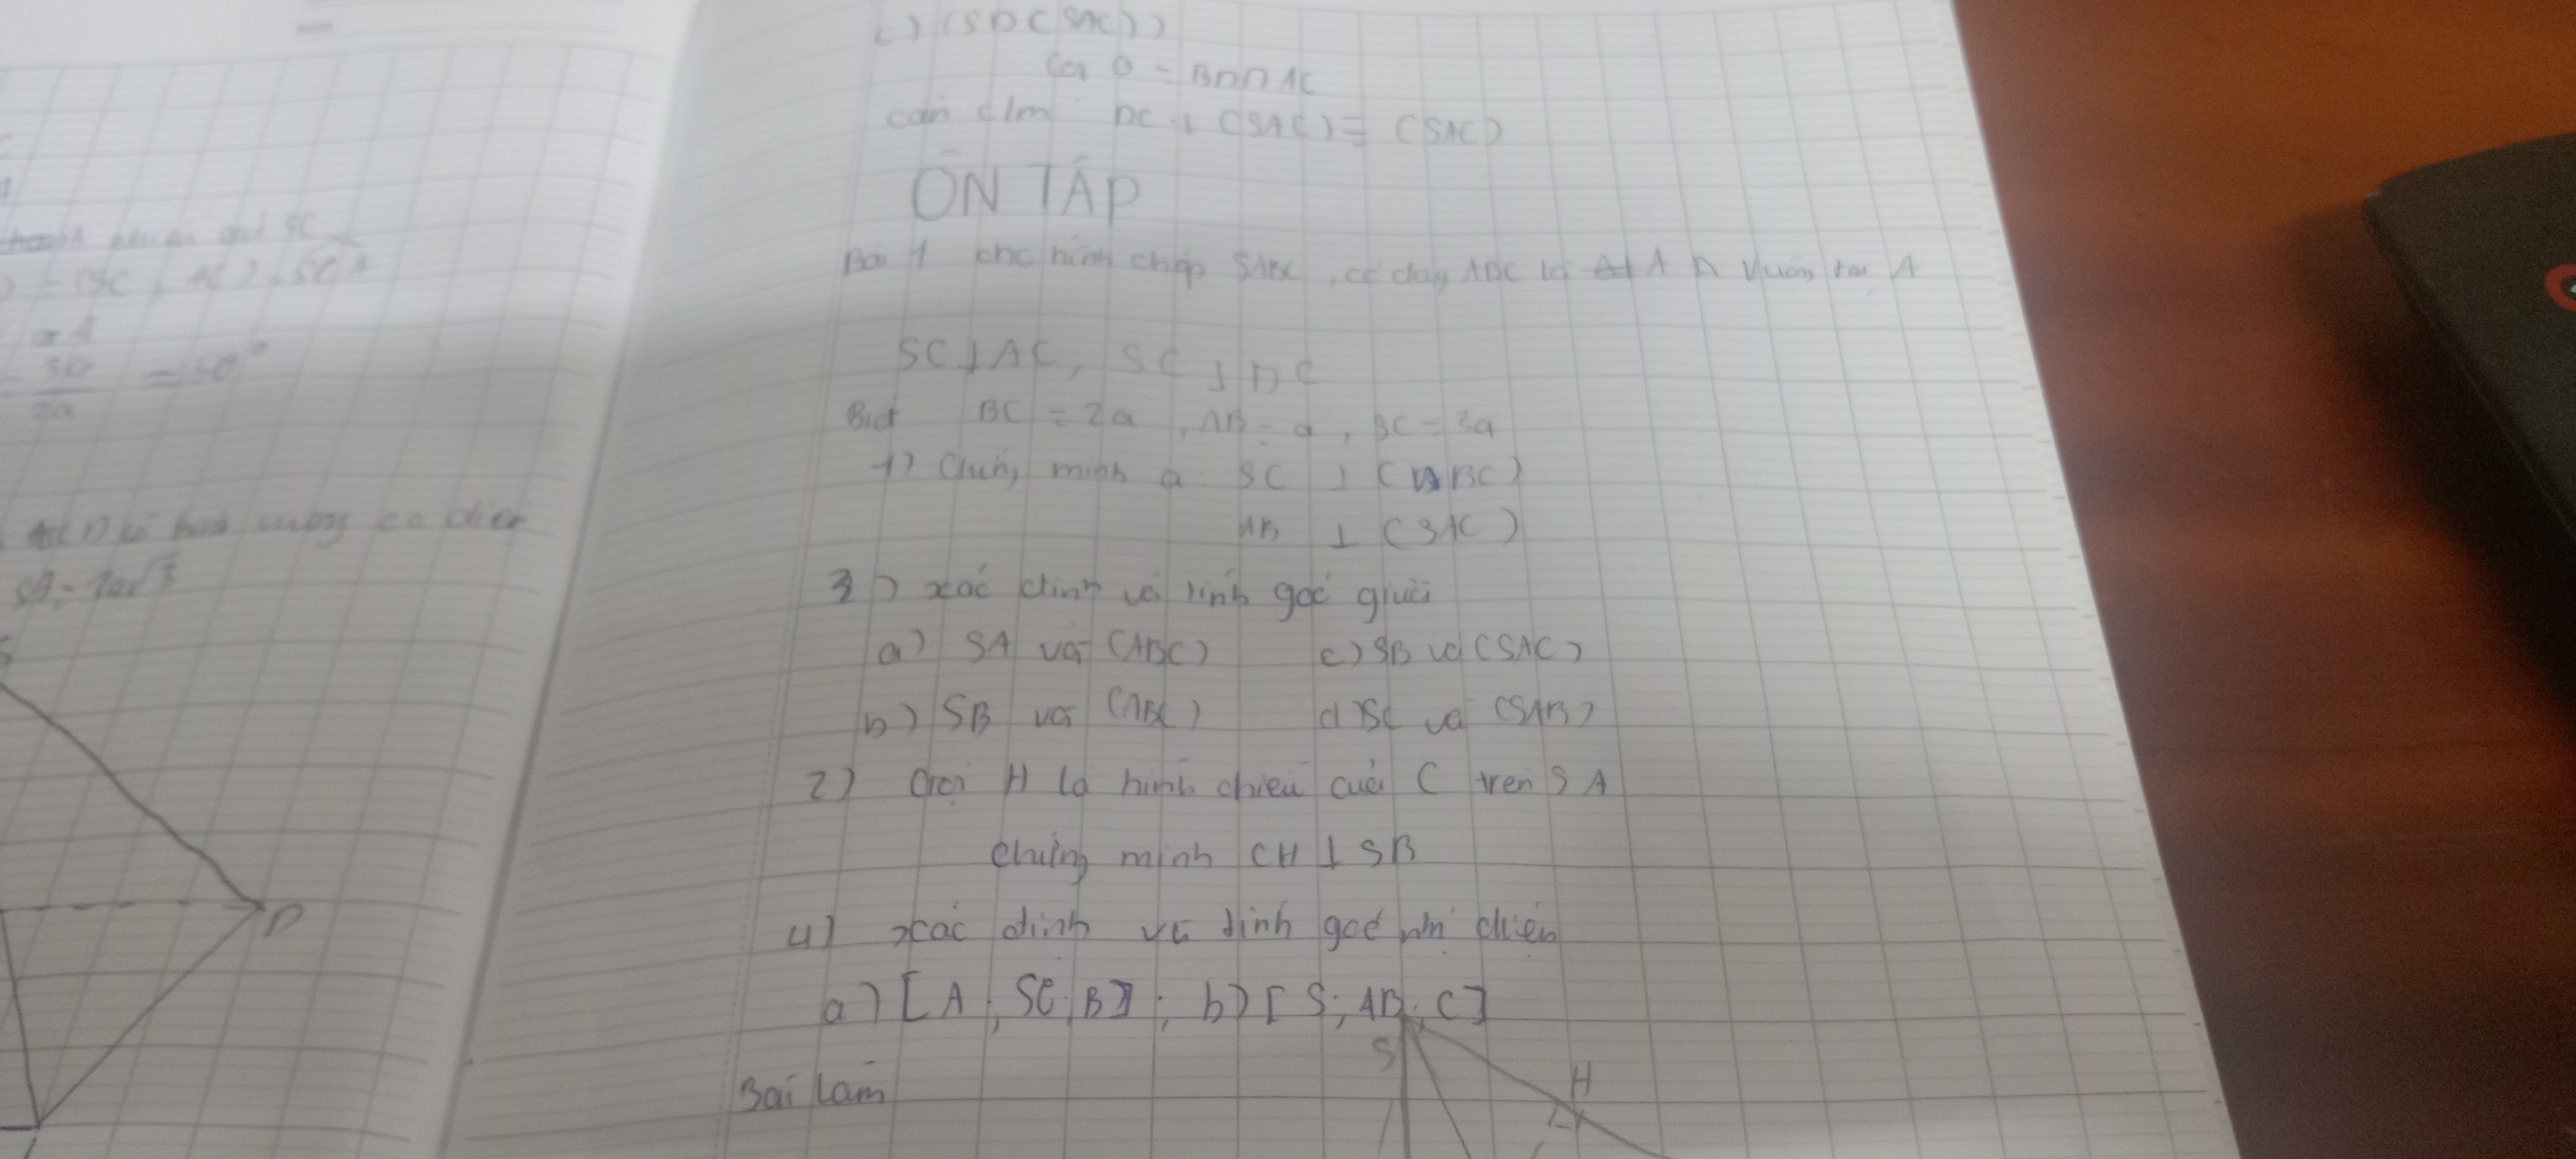 SC
= (SC, AC) = SCA
3a
2a
hình vuông có diện
SA = 2a√3
D
c) (SB (SAC))
Gọi O = BD ∩ AC
cần c/m DC ⊥ (SAC) = (SAC)
ÔN TẬP
Bài 1 cho hình chóp SABC, có đáy ABC là Δ vuông tại A
SC ⊥ AC, SC ⊥ BC
Biết BC = 2a, AB = a, SC = 3a
1) Chứng minh a SC ⊥ (ABC)
AB ⊥ (SAC)
3) xác định và tính góc giữa
a) SA và (ABC) c) SB và (SAC)
b) SB và (ABC) d) SC và (SAB)
2) Gọi H là hình chiếu của C trên SA
chứng minh CH ⊥ SB
4) xác định và tính góc nhị diện
a) [A; SC; B]; b) [S; AB; C]
S
H
Bài làm